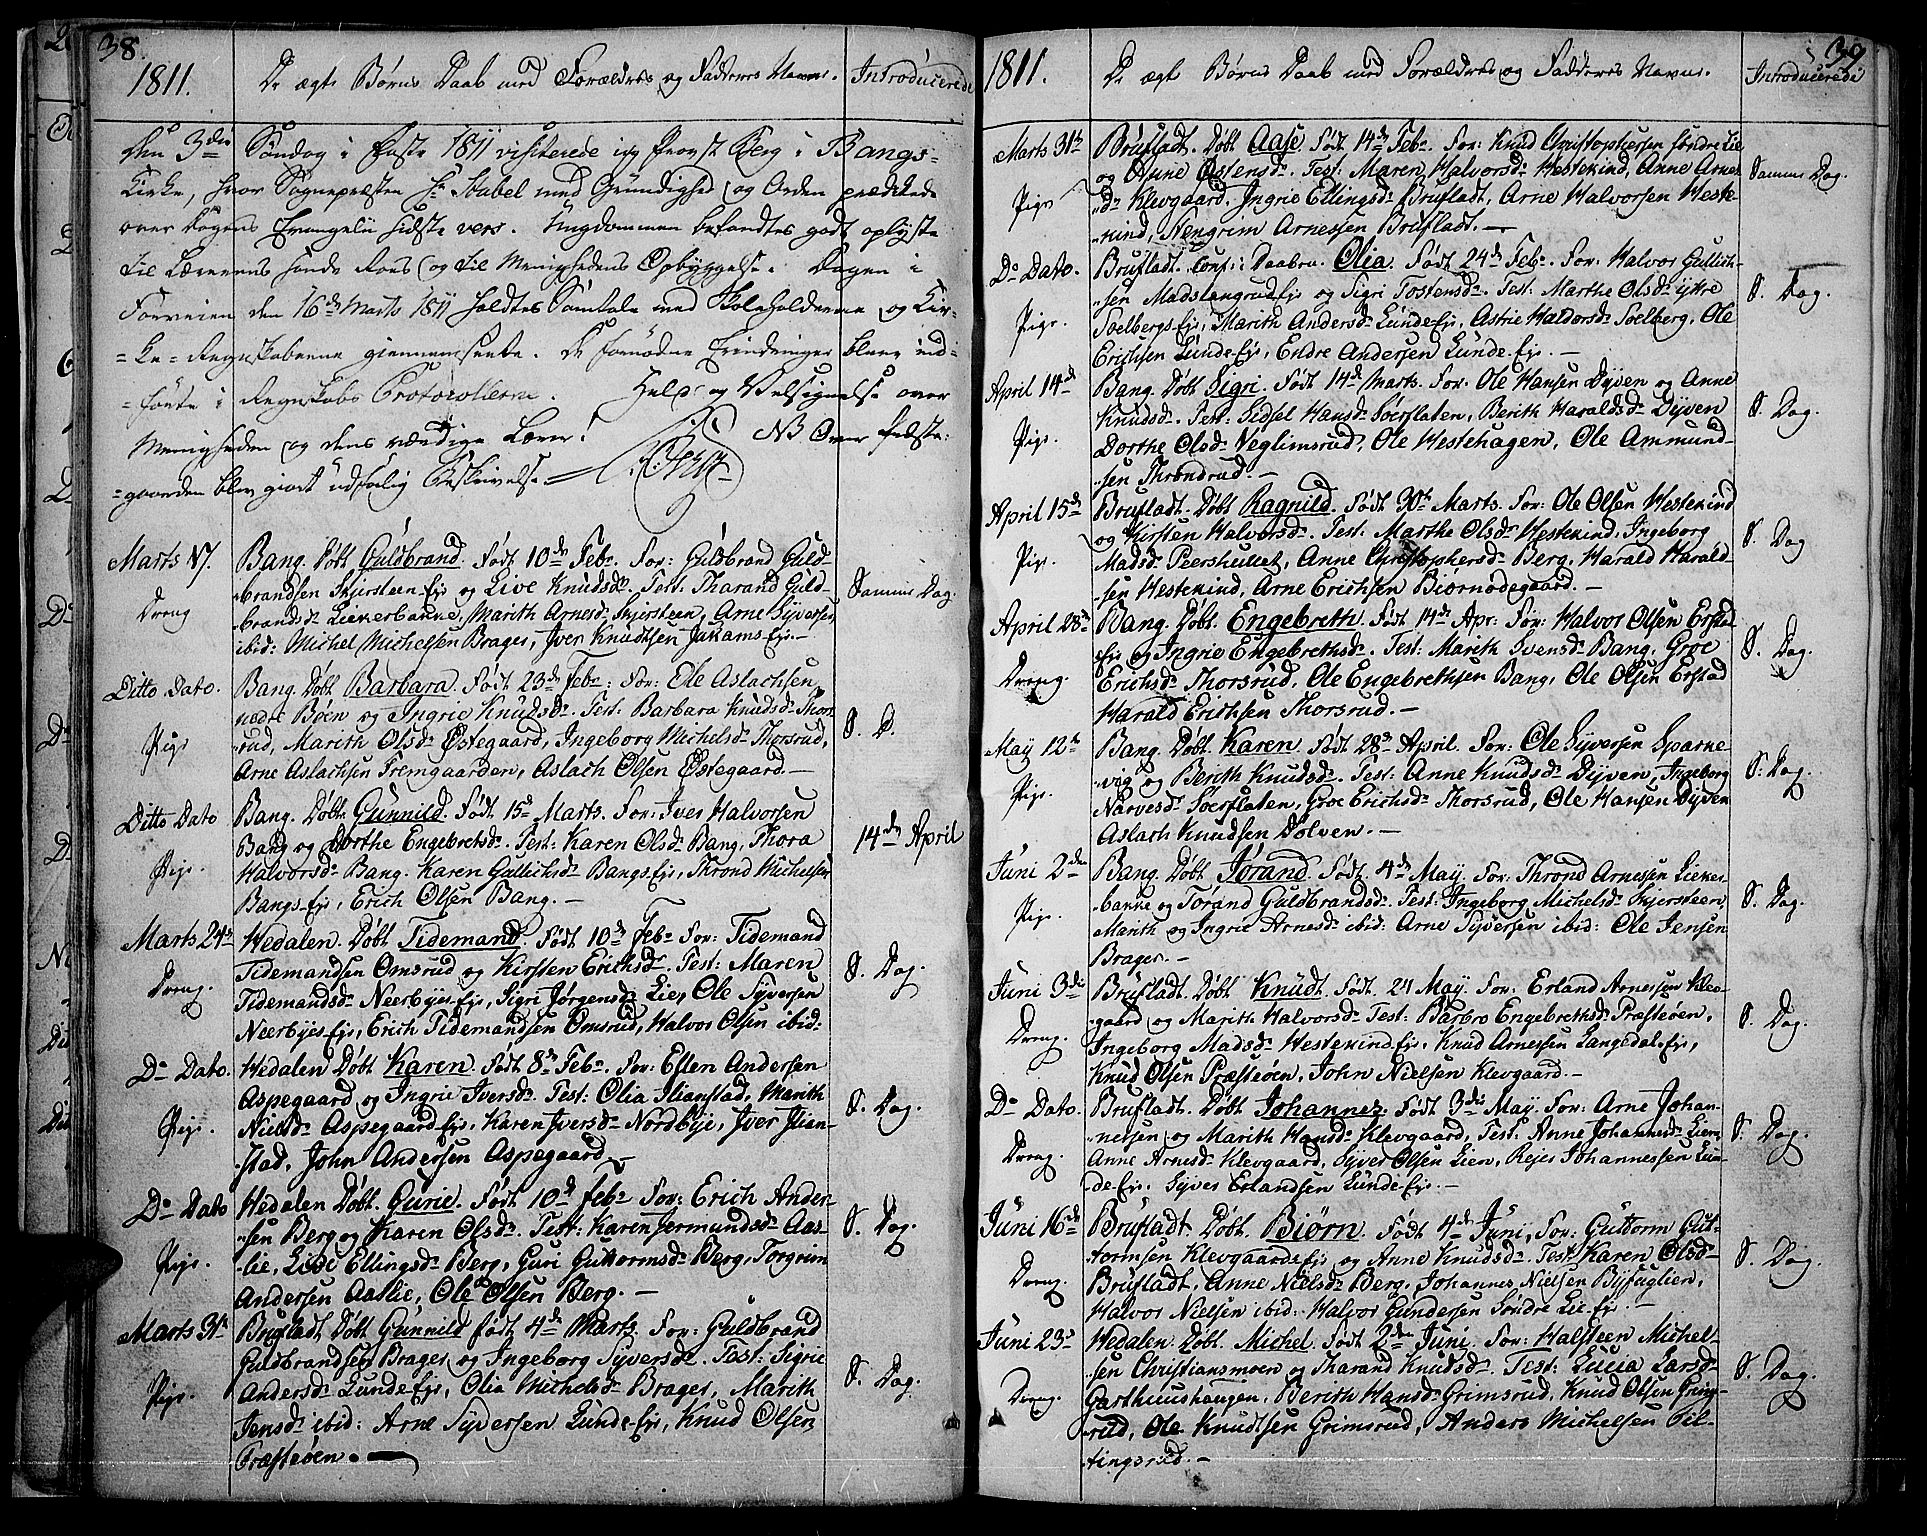 38.
1811.
De ægte Børns Daab med Forældres og Fadderes Navne.
Introducerede
Den 3die Søndag i Faste 1811 visiterede jeg Provst Berg i Bangs-
Kirke, hvor Sognepræsten Hr Stabel med Grundighed og Orden prædikede
over Dagens Evangelii sidste vers. Ungdommen befandtes godt oplyste
til Lærerens sande Roes og til Menighedens Opbyggelse. Dagen i
Forveien den 16de Marts 1811 holdtes Samtale med Skoleholderne og Kir-
ke-Regnskaberne giennemseete. De fornødne Erindringer bleve ind-
førte i Regnskabs Protocollerne. Held og Velsignelse over
Menigheden og dens værdige Lærer! NB Over Præste-
gaarden blev giort udførlig Beskrivelse
Marts 17.
Dreng
Bang. Døbt Guldbrand. Født 10de Febr. For: Guldbrand Guld-
brandsen Skjersteen-Ejr og Live Knudsdr. Test: Tharand Guld-
brandsdr Liekerbanne, Marith Arnesdr Skjersteen, Arne Syversen
ibid: Michel Michelsen Brager, Iver Knudtsen Juvkams-Ejr.
Samme Dag.
Ditto Dato.
Pige
Bang. Døbt Barbara. Født 23de Febr: For: Ole Aslachsen
nedre Bøen og Ingrie Knudsdr. Test: Barbara Knudsdr Thors-
rud, Marith Olsdr Østegaard, Ingeborg Michelsdr Thorsrud,
Arne Aslachsen Fremgaarden, Aslach Olsen Østegaard.
S. D.
Ditto Dato
Pige.
Bang. Døbt Gunnild. Født 15de Marts. For: Iver Halvorsen
Bang og Dorthe Engebretsdr. Test: Karen Olsdr Bang, Thora
Halvorsdr Bang. Karen Gullichsdr Bangs-Ejr, Thrond Michelsen
Bangs-Ejr, Erich Olsen Bang.
14de April
Marts 24de
Dreng.
Hedalen. Døbt Tidemand. Født 10de Febr For: Tidemand
Tidemandsen Omsrud og Kirsten Erichsdr. Test: Maren
Tidemandsdr Neerbyes-Ejr, Sigri Jørgensdr Lie, Ole Syversen
Neerbyes-Ejr, Erich Tidemandsen Omsrud, Halvor Olsen ibid:
S. Dag.
Do Dato.
Pige.
Hedalen Døbt Karen. Født 8de Febr. For: Esten Andersen
Aspegaard og Ingrie Iversdr. Test: Olia Ilianstad, Marith
Nielsdr Aspegaard-Ejr, Karen Iversdr Nordbye, Iver Ilian-
stad, John Andersen Aspegaard.
S. Dag.
Do Dato
Pige.
Hedalen Døbt Gurie. Født 10de Febr For: Erich Ander-
sen Berg og Karen Olsdr. Test: Karen Jermundsdr Aas-
lie, Live Ellingsdr Berg, Guri Guttormsdr Berg, Torgrim
Andersen Aaslie, Ole Olsen Berg.
S. Dag.
Marts 31te
Pige.
Brufladt Døbt Gunnild født 4de Marts. For: Guldbrand
Guldbrandsen Brager og Ingeborg Syversdr. Test: Sigrie
Andersdr Lunde-Ejr, Olia Michelsdr Brager, Marith
Jensdr ibid: Arne Syversen Lunde-Ejr, Knud Olsen
Præsteøen.
S. Dag.
39
1811.
De ægte Børns Daab med Forældres og Fadderes Navne.
Introducerede
Marts 31te
Pige
Brufladt. Døbt Aase Født 14de Febr. For: Knud Christophersen søndre Lie
og Anne Ostensdr. Test: Maren Halvorsdr Hestekind, Anne Arnes
dr Klevgaard, Ingrie Ellingsdr Brufladt, Arne Halvorsen Heste-
kind, Nengrim Arnessen Brufladt.
Samme Dag.
Do Dato.
Pige.
Brufladt. Conf: i Daaben. Olia. Født 24de Febr. For: Halvor Gullich-
sen Madslangrud-Ejr og Sigri Tostensdr. Test: Marthe Olsdr ytre
Soelbergs-Ejr, Marith Andersdr Lunde-Ejr, Astrie Haldorsdr Soelberg, Ole
Erichsen Lunde-Ejr, Endre Andersen Lunde-Ejr.
S. Dag.
April 14de
Pige.
Bang. Døbt Sigri. Født 14de Marts. For: Ole Hansen Dyven og Anne
Knudsdr. Test: Sidsel Hansdr Søerflaten, Berith Haraldsdr Dyven
Dorthe Olsdr Veglimsrud, Ole Hestehagen, Ole Ammund-
sen Throndrud.
S. Dag.
April 15de
Pige.
Brufladt. Døbt Ragnild. Født 30te Marts. For: Ole Olsen Hestekind
og Kirsten Halvorsdr. Test: Marthe Olsdr Hestekind, Ingeborg
Madsdr Peershuset, Anne Christophersdr Berg, Harald Harald-
sen Hestekind, Arne Erichsen Biørnødegaard.
S. Dag
April 28de
Dreng.
Bang. Døbt Engebreth. Født 14de Apr. For: Halvor Olsen Erstad-
Ejr og Ingrie Engebrethsdr. Test: Marith Svensdr Bang, Groe
Erichsdr Thorsrud, Ole Engebrethsen Bang, Ole Olsen Erstad
Harald Erichsen Thorsrud.
S. Dag.
May 12te
Pige.
Bang. Døbt Karen. Født 28de April. For: Ole Syversen Sparne-
vig og Berith Knudsdr. Test: Anne Knudsdr Dyven, Ingeborg
Narvesdr Søerflaten, Groe Erichsdr Thorsrud, Ole Hansen Dyven
Aslach Knudsen Dølven.
S. Dag.
Juni 2den
Pige.
Bang. Døbt Jørand. Født 4de May. For: Thrond Arnessen Lieker-
banne og Tørand Guldbrandsdr. Test: Ingeborg Michelsdr Skjersteen
Marith og Ingrie Arnesdr ibid: Arne Syversen ibid: Ole Jensen
Brager.
S. Dag.
Juni 3die
Dreng.
Brufladt. Døbt Knudt. Født 21 May. For: Erland Arnessen Klev-
gaard og Marith Halvorsdr Test: Barbro Engebrethsdr Præsteøen,
Ingeborg Madsdr Hestekind-Ejr, Knud Arnessen Langedal-Ejr,
Knud Olsen Præsteøen, John Nielsen Klevgaard.
S. Dag.
Do Dato.
Dreng.
Brufladt. Døbt Johannes. Født 3die May. For: Arne Johan-
nessen og Marith Hansdr Klevgaard, Test: Anne Johannesdr Lien
Anne Arnesdr Klevgaard, Syver Olsen Lien, Rejer Johannessen Lun-
de-Ejr. Syver Erlandsen Lunde-Ejr.
S. Dag.
Juni 16de
Dreng.
Brufladt. Døbt Biørn. Født 4de Juni, For: Guttorm Gut-
tormsen Klevgaards-Ejr og Anne Knudsdr. Test: Karen Olsdr
Brufladt, Anne Nielsdr Berg, Johannes Nielsen Byfuglien,
Halvor Nielsen ibid: Halvor Gundersen Søndre Lie-Ejr.
S. Dag.
Juni 23de
Dreng.
Hedalen. Døbt. Michel. Født 2den Juni. For: Halsteen Michel-
sen Christiansmoen og Tharand Knudsdr. Test: Lucia Larsdr
Garthuushaugen, Berith Hansdr Grimsrud, Knud Olsen Grims-
rud, Ole Knudtsen Grimsrud, Anders Michelsen Til-
tingsrud.
S. Dag.